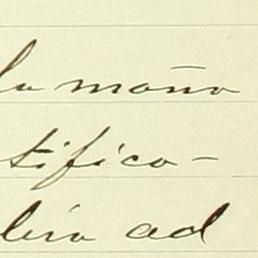 la mano
tifico-
bia ad